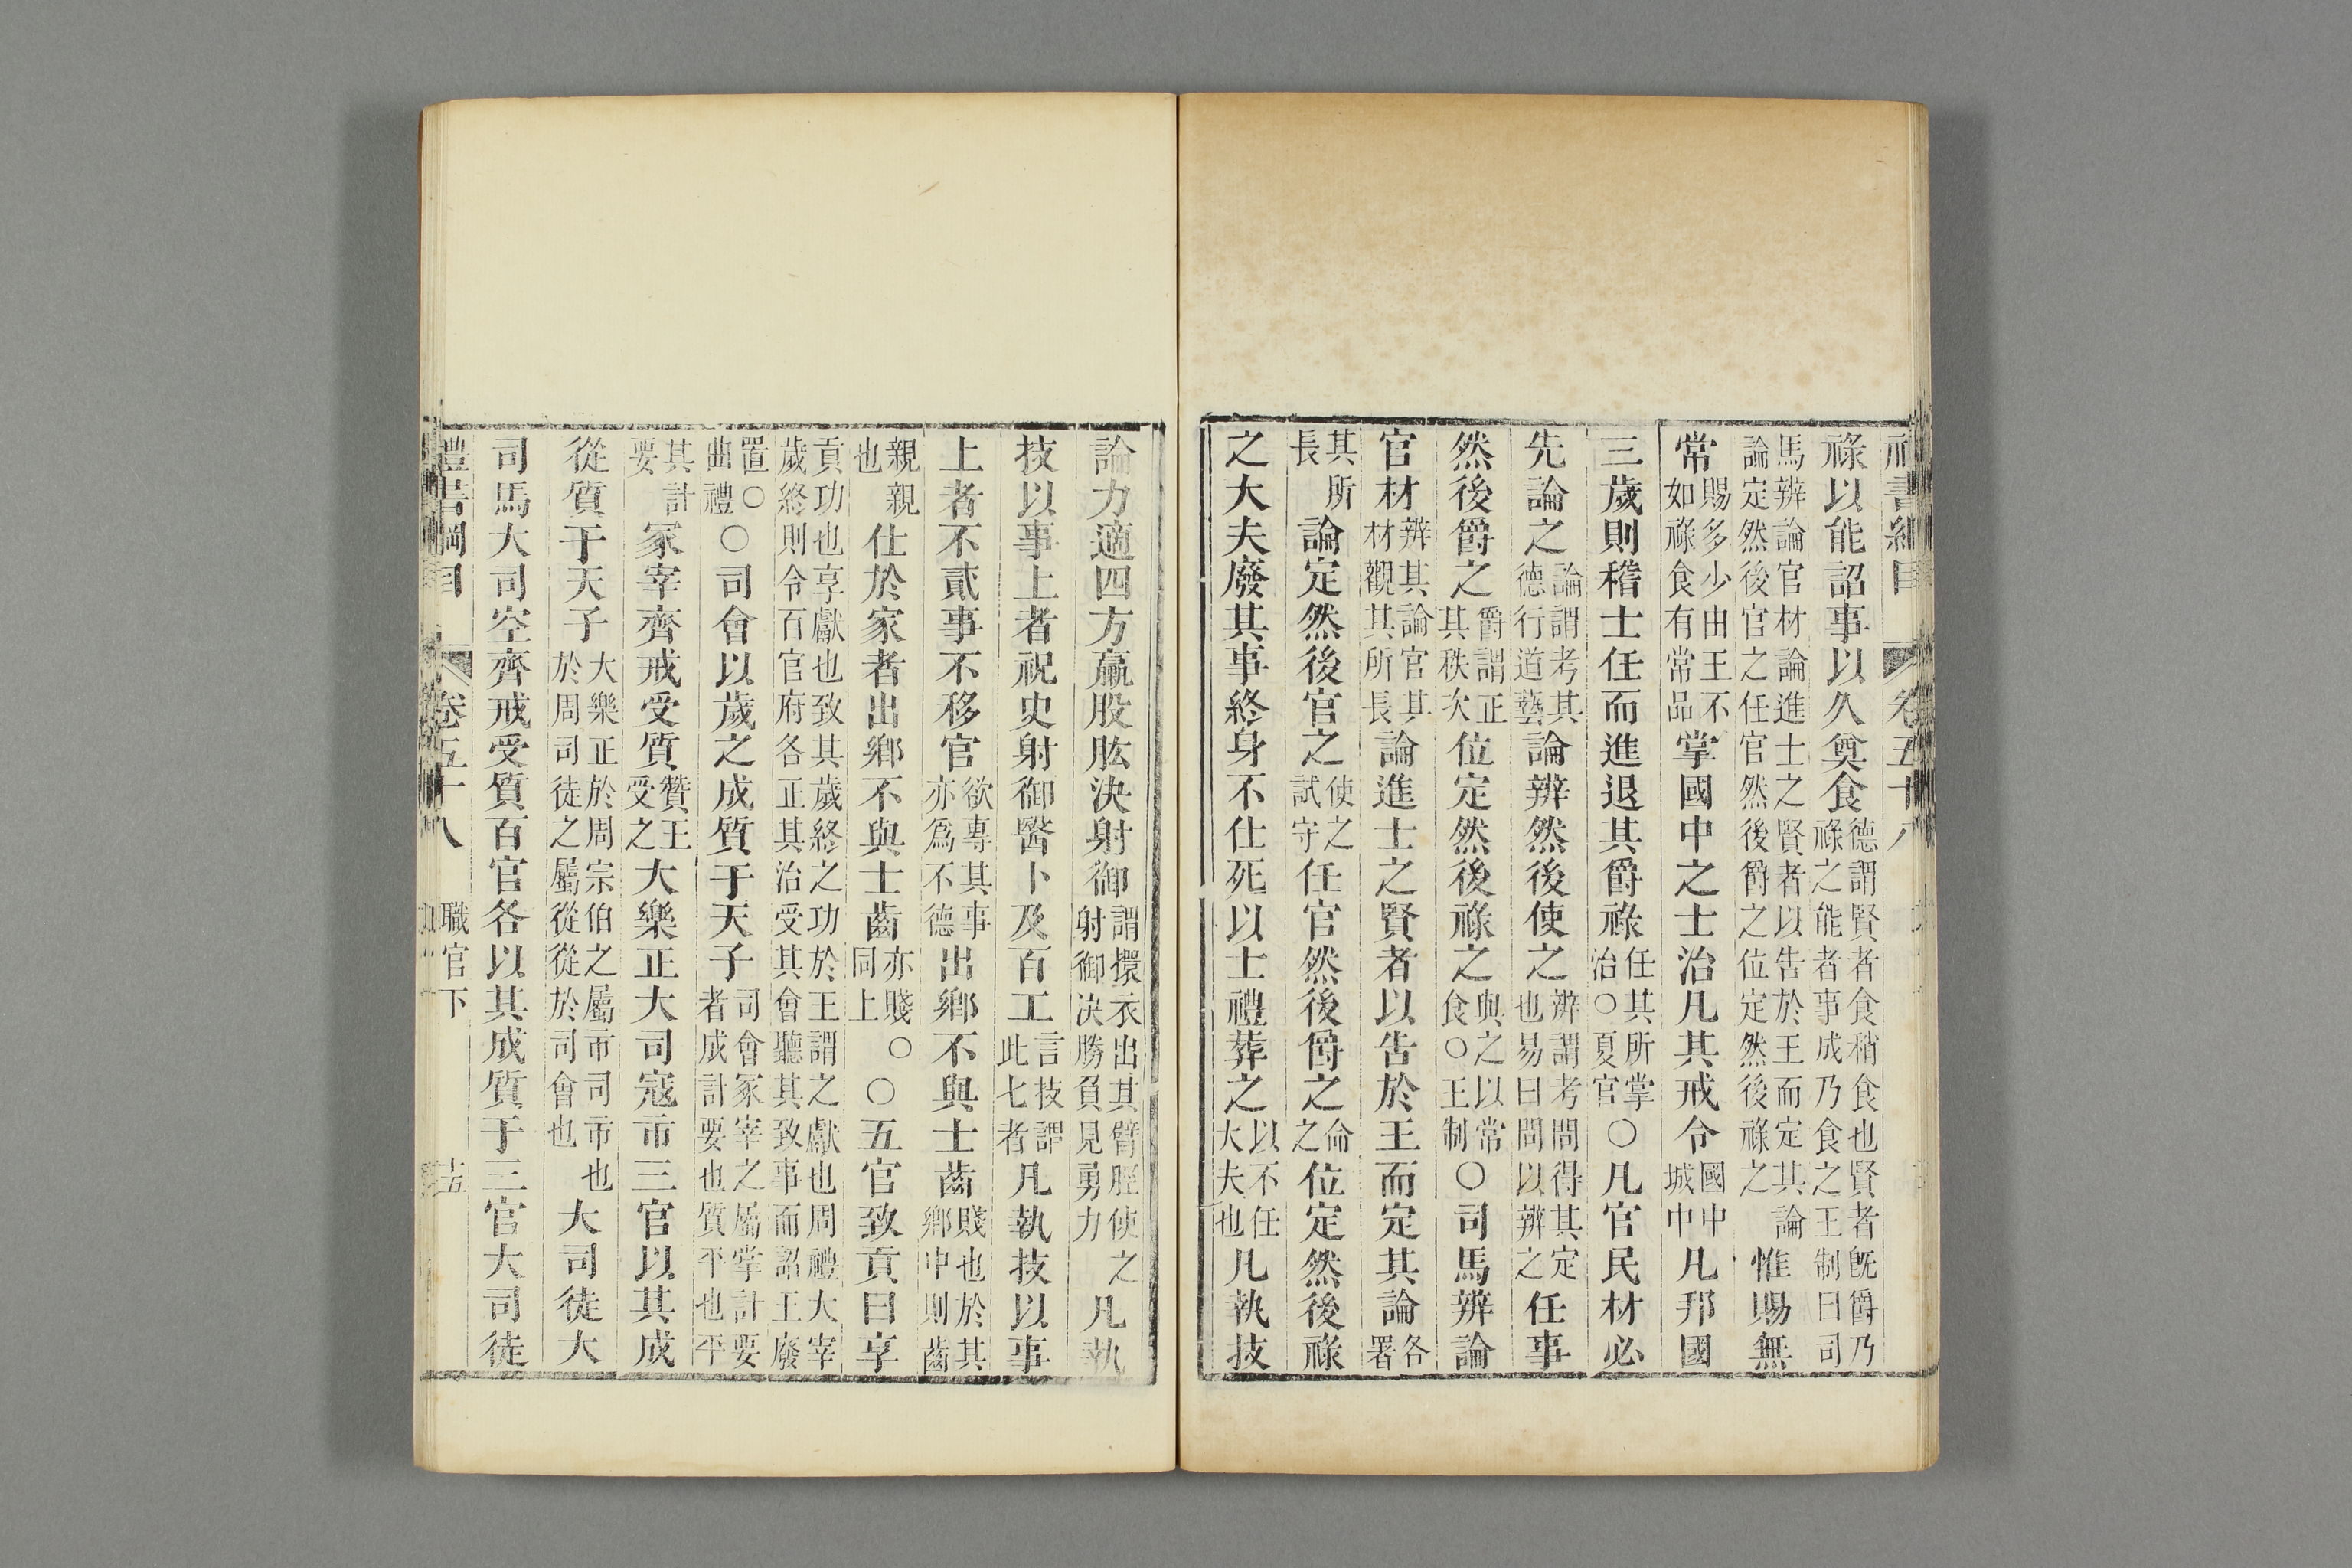 禮書綱目 卷五十八
祿以能詔事以久奠食德謂賢者食稍食也賢者既爵乃祿之能者事成乃食之王制曰司
馬辨論官材論進士之賢者以告於王而定其論論定然後官之任官然後爵之位定然後祿之惟賜無
常賜多少由王不如祿食有常品掌國中之士治凡其戒令國中城中凡邦國
三歲則稽士任而進退其爵祿任其所掌治○夏官○凡官民材必
先論之論謂考其德行道藝論辨然後使之辨謂考問得其定也易曰問以辨之任事
然後爵之爵謂正其秩次位定然後祿之與之以常食○王制○司馬辨論
官材辨其論官其材觀其所長論進士之賢者以告於王而定其論各署
其所長論定然後官之使之試守任官然後爵之命之位定然後祿
之大夫廢其事終身不仕死以士禮葬之以不任大夫也凡執技
論力適四方贏股肱決射御謂擐衣出其臂脛使之射御決勝負見勇力凡執
技以事上者祝史射御醫卜及百工言技謂此七者凡執技以事
上者不貳事不移官欲專其事亦爲不德出鄉不與士齒賤也於其鄉中則齒
親親也仕於家者出鄉不與士齒亦賤○同上○五官致貢曰享
貢功也享獻也致其歲終之功於王謂之獻也周禮大宰歲終則令百官府各正其治受其會聽其致事而詔王廢
置○曲禮○司會以歲之成質于天子司會冢宰之屬掌計要者成計要也質平也平
其計要冢宰齊戒受質贊王受之大樂正大司寇市三官以其成
從質于天子大樂正於周宗伯之屬市司市也於周司徒之屬從從於司會也大司徒大
司馬大司空齊戒受質百官各以其成質于三官大司徒
禮書綱目 卷五十八 職官下 十五